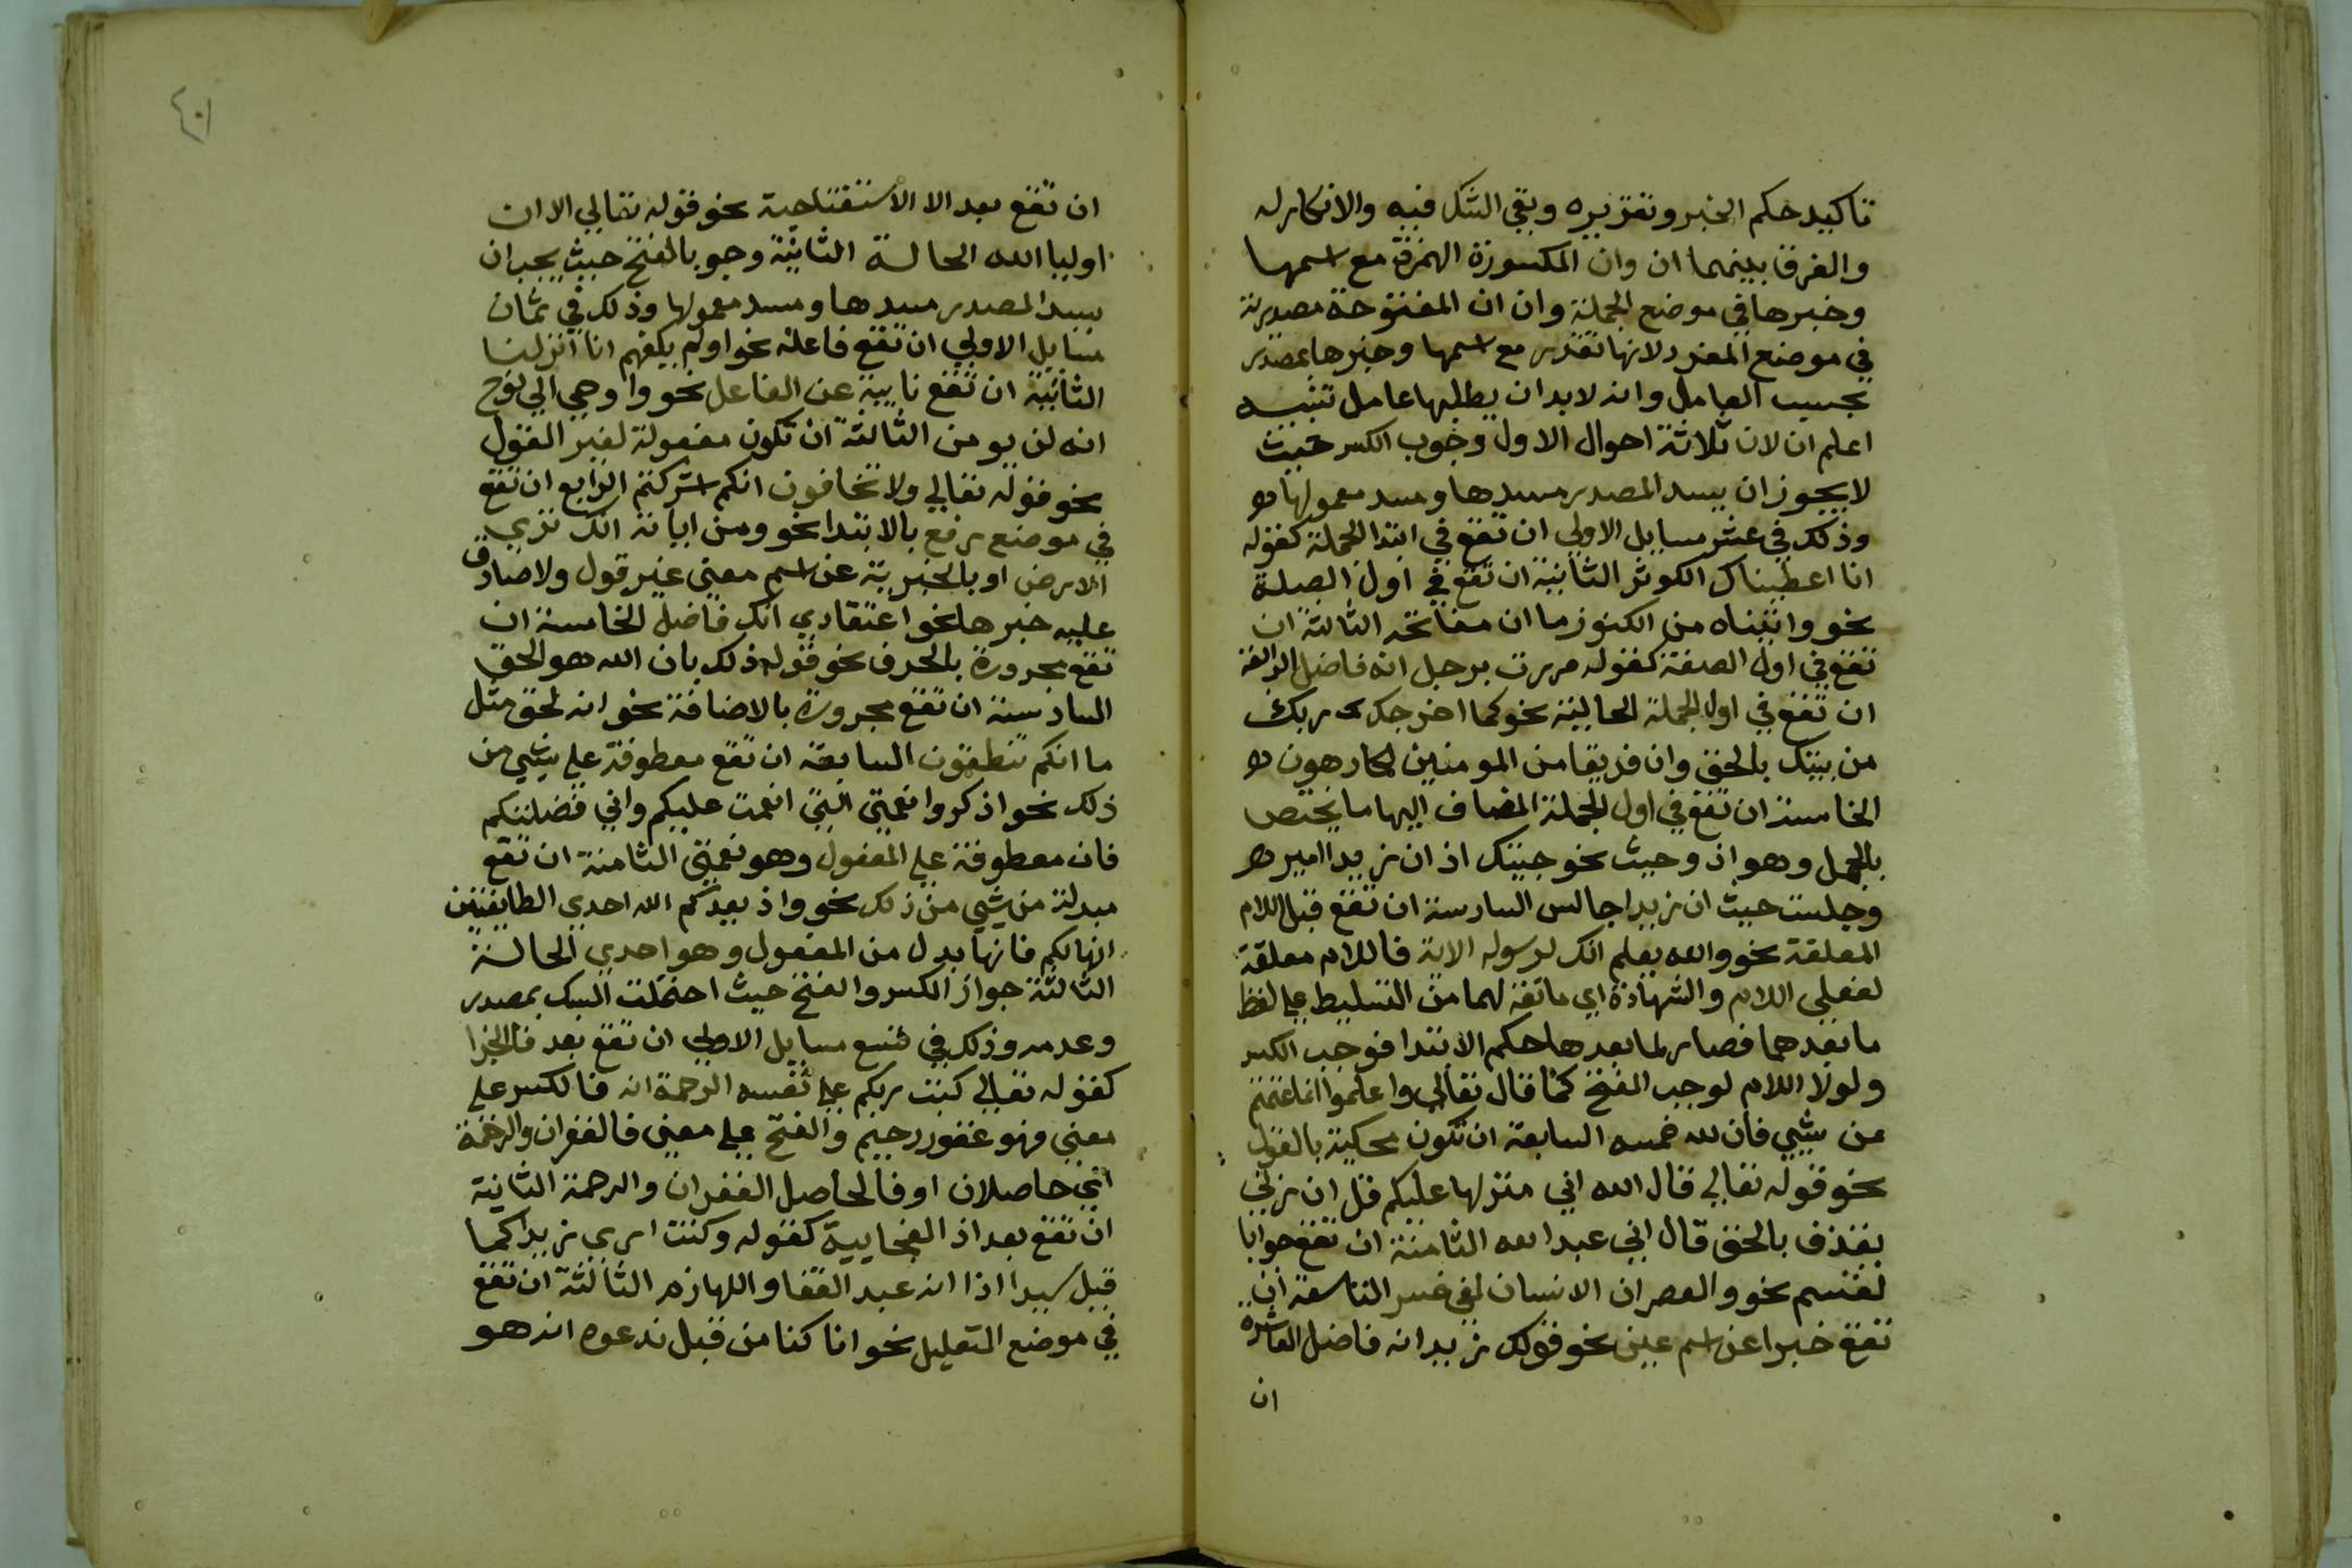 تاكيد حكم الخبر وتقريره ونفي الشك فيه والانكار له
والفرق بينهما ان وان المكسورة الهمزة مع اسمها
وخبرها في موضع الجملة وان ان المفتوحة مصدرية
في موضع المفرد لانها تقدر مع اسمها وخبرها بمصدر
بحسب العامل وانه لابد ان يطلبها عامل تنبيه
اعلم ان لان ثلاثة احوال الاول وجوب الكسر حيث
لا يجوز ان يسد المصدر مسدها ومسد معمولها
وذلك في عشر مسايل الاولي ان تقع في ابتدا الجملة كقوله
انا اعطيناك الكوثر الثانية ان تقع في اول الصلة
نحو واتيناه من الكنوز ما ان مفاتحه الثالثة ان
تقع في اول الصفة كقوله مررت برجل انه فاضل الرابعة
ان تقع في اول الجملة الحالية نحو كما اخرجك ربك
من بيتك بالحق وان فريقا من المومنين لكارهون
الخامسة ان تقع في اول الجملة المضاف اليها ما يختص
بالجمل وهو اذ وحيث نحو جيتك اذ ان زيدا امير
وجلست حيث ان زيدا جالس السادسة ان تقع قبل اللام
المعلقة نحو والله يعلم انك لرسوله الاية فاللام معلقة
لفعلي اللام والشهادة اي مانعة لهما من التسليط علي لفظ
ما بعدهما فصار لما بعدها حكم الابتدا فوجب الكسر
ولولا اللام لوجب الفتح كما قال تعالي واعلموا انما غنمتم
من شيي فان لله خمسه السابعة ان تكون محكية بالقول
نحو قوله تعالي قال الله اني منزلها عليكم قل ان ربي
يقذف بالحق قال اني عبد الله الثامنة ان تقع جوابا
لقسم نحو والعصر ان الانسان لفي خسر التاسعة ان
تقع خبرا عن اسم عين نحو قولك زيد انه فاضل العاشرة
ان
٤٠١
ان تقع بعد الا الاستفتاحية نحو قوله تعالي الا ان
اوليا الله الحالة الثانية وجوب الفتح حيث يجب ان
يسد المصدر مسدها ومسد معمولها وذلك في ثمان
مسايل الاولي ان تقع فاعلة نحو اولم يكفهم انا انزلنا
الثانية ان تقع نايبة عن الفاعل نحو واوحي الي نوح
انه لن يومن الثالثة ان تكون مفعولة لغير القول
نحو قوله تعالي ولا تخافون انكم اشركتم الرابع ان تقع
في موضع رفع بالابتدا نحو ومن اياته انك تري
الارض او بالخبرية عن اسم معني غير قول ولا صادق
عليه خبرها نحو اعتقادي انك فاضل الخامسة ان
تقع مجرورة بالحرف نحو قوله ذلك بان الله هو الحق
السادسة ان تقع مجرورة بالاضافة نحو انه لحق مثل
ما انكم تنطقون السابعة ان تقع معطوفة علي شيي من
ذلك نحو اذكروا نعمتي التي انعمت عليكم واني فضلتكم
فان معطوفة علي المفعول وهو نعمتي الثامنة ان تقع
مبدلة من شيي من ذلك نحو واذ يعدكم الله احدي الطايفتين
انها لكم فانها بدل من المفعول وهو احدي الحالة
الثالثة جواز الكسر والفتح حيث احتملت السبك بمصدر
وعدمه وذلك في تسع مسايل الاولي ان تقع بعد فا الجزا
كقوله تعالي كتب ربكم علي نفسه الرحمة انه فالكسر علي
معني فهو غفور رحيم والفتح علي معني فالغفران والرحمة
اي حاصلان او فالحاصل الغفران والرحمة الثانية
ان تقع بعد اذ الفجايية كقوله وكنت اري زيدا كما
قيل سيدا اذا انه عبد القفا واللهازم الثالثة ان تقع
في موضع التعليل نحو انا كنا من قبل ندعوه انه هو